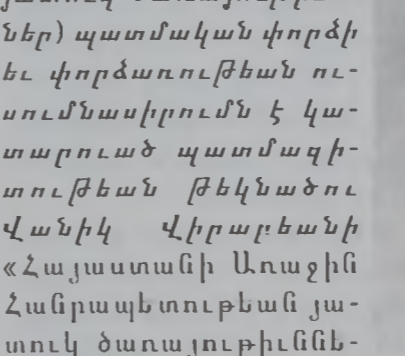 ներ) պատմական փորձի
եւ փորձառութեան ու-
սումնասիրումն է կա-
տարուած պատմագի-
տութեան թեկնածու
Վանիկ Վիրաբեանի
«Հայաստանի Առաջին
Հանրապետութեան յա-
տուկ ծառայութիւննե-